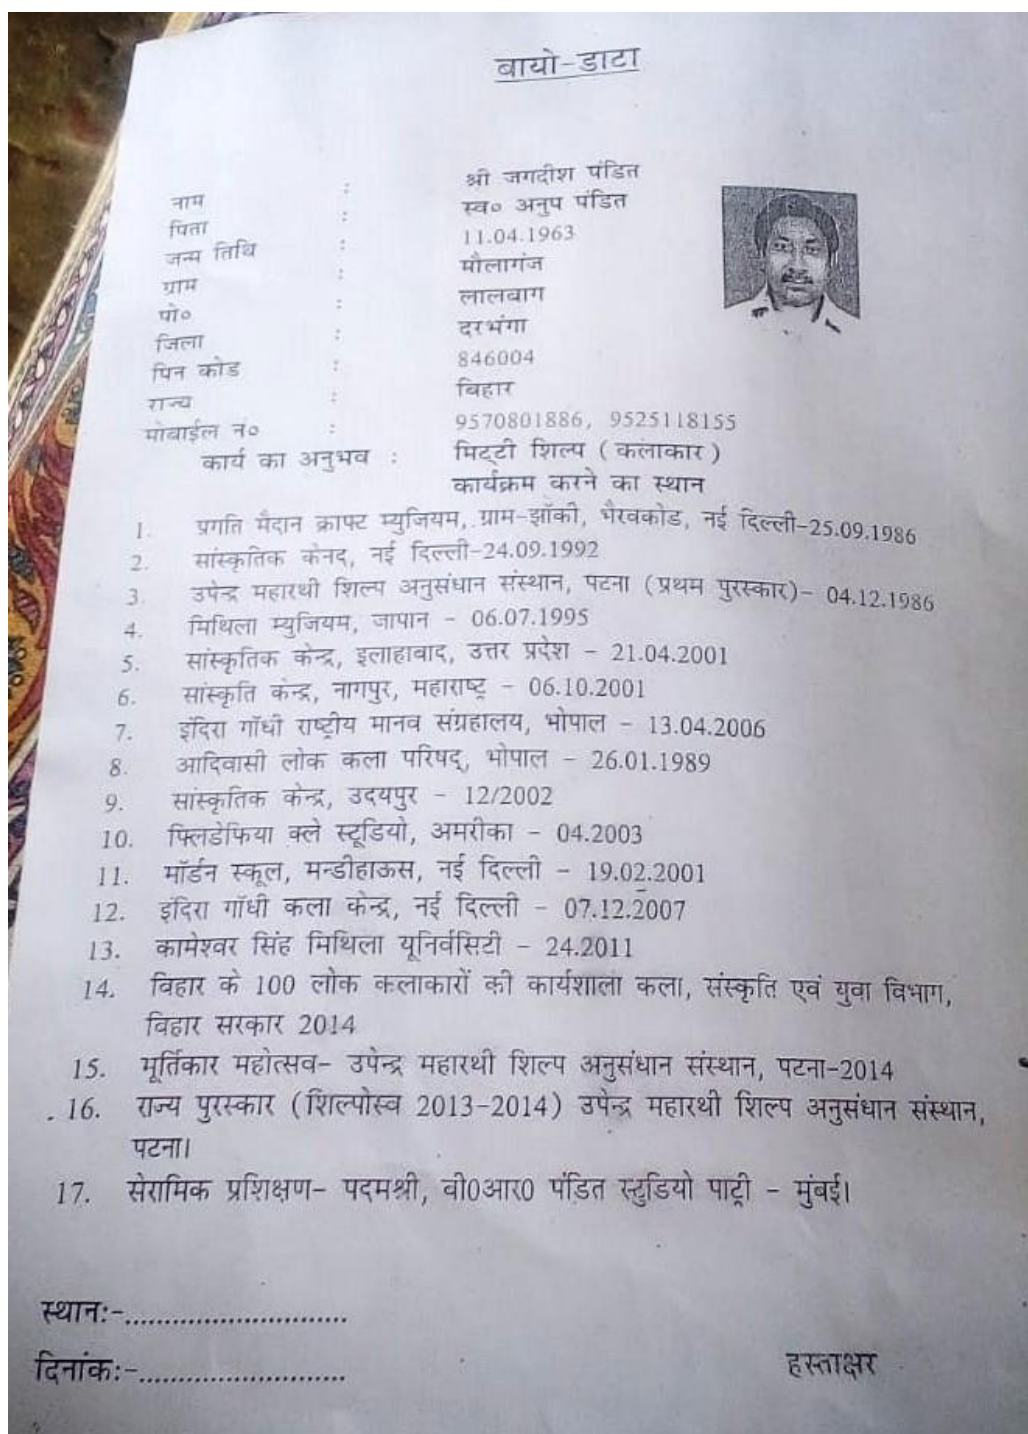 बायो-डाटा
नाम : श्री जगदीश पंडित
पिता : स्व० अनुप पंडित
जन्म तिथि : 11.04.1963
ग्राम : मौलागंज
पो० : लालबाग
जिला : दरभंगा
पिन कोड : 846004
राज्य : बिहार
मोबाईल नं० : 9570801886, 9525118155
कार्य का अनुभव : मिट्टी शिल्प (कलाकार)
कार्यक्रम करने का स्थान
1. प्रगति मैदान क्राफ्ट म्युजियम, ग्राम-झाँकी, भैरवकोड, नई दिल्ली-25.09.1986
2. सांस्कृतिक केनद, नई दिल्ली-24.09.1992
3. उपेन्द्र महारथी शिल्प अनुसंधान संस्थान, पटना (प्रथम पुरस्कार)- 04.12.1986
4. मिथिला म्युजियम, जापान - 06.07.1995
5. सांस्कृतिक केन्द्र, इलाहाबाद, उत्तर प्रदेश - 21.04.2001
6. सांस्कृति केन्द्र, नागपुर, महाराष्ट्र - 06.10.2001
7. इंदिरा गाँधी राष्ट्रीय मानव संग्रहालय, भोपाल - 13.04.2006
8. आदिवासी लोक कला परिषद्, भोपाल - 26.01.1989
9. सांस्कृतिक केन्द्र, उदयपुर - 12/2002
10. फ्लिडेफिया क्ले स्टूडियो, अमरीका - 04.2003
11. मॉर्डन स्कूल, मन्डीहाऊस, नई दिल्ली - 19.02.2001
12. इंदिरा गाँधी कला केन्द्र, नई दिल्ली - 07.12.2007
13. कामेश्वर सिंह मिथिला यूनिर्वसिटी - 24.2011
14. विहार के 100 लोक कलाकारों की कार्यशाला कला, संस्कृति एवं युवा विभाग,
विहार सरकार 2014
15. मूर्तिकार महोत्सव- उपेन्द्र महारथी शिल्प अनुसंधान संस्थान, पटना-2014
16. राज्य पुरस्कार (शिल्पोस्व 2013-2014) उपेन्द्र महारथी शिल्प अनुसंधान संस्थान,
पटना।
17. सेरामिक प्रशिक्षण- पदमश्री, वी0आर0 पंडित स्टुडियो पाट्री - मुंबई।
स्थान:-............................
दिनांक:-..........................
हस्ताक्षर